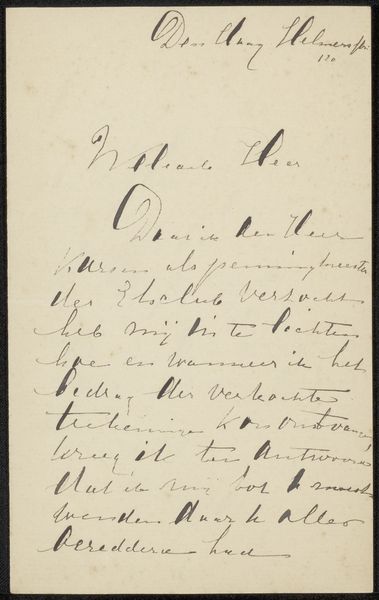 Den Haag Helmersstr
120
WelEdele Heer
Daar ik den Heer
Karsen als penningmeester
der Etsclub verzocht
heb mij in te lichten
hoe en wanneer ik het
bedrag der verkochte
teekeningen kon ontvangen
kreeg ik ten antwoord
dat ik mij tot U moest
wenden daar U alles
beredderd had